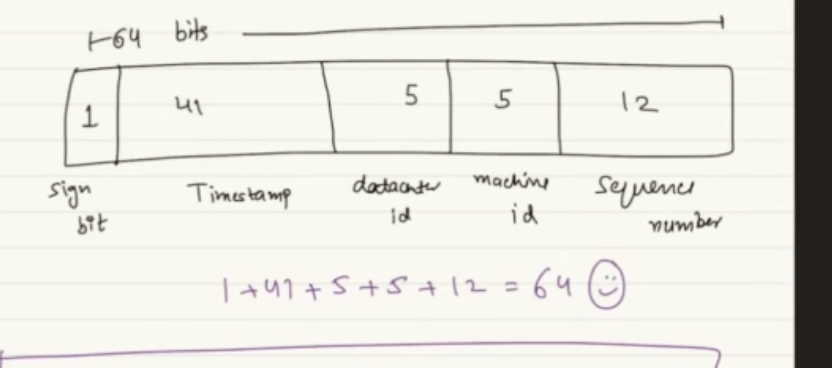 64 bits
1 41 5 5 12
Sign bit Timestamp datacenter id machine id Sequence number
1 + 41 + 5 + 5 + 12 = 64